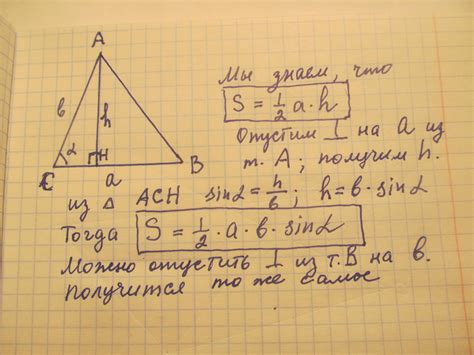 A
в
h
α
H
C
a
B
Мы знаем, что
S = 1/2 a·h
Опустим ⊥ на a из
т. А; получим h.
из △ ACH sinα = h/в; h = в·sinα
Тогда S = 1/2·a·в·sinα
Можно опустить ⊥ из т. В на в.
получится то же самое